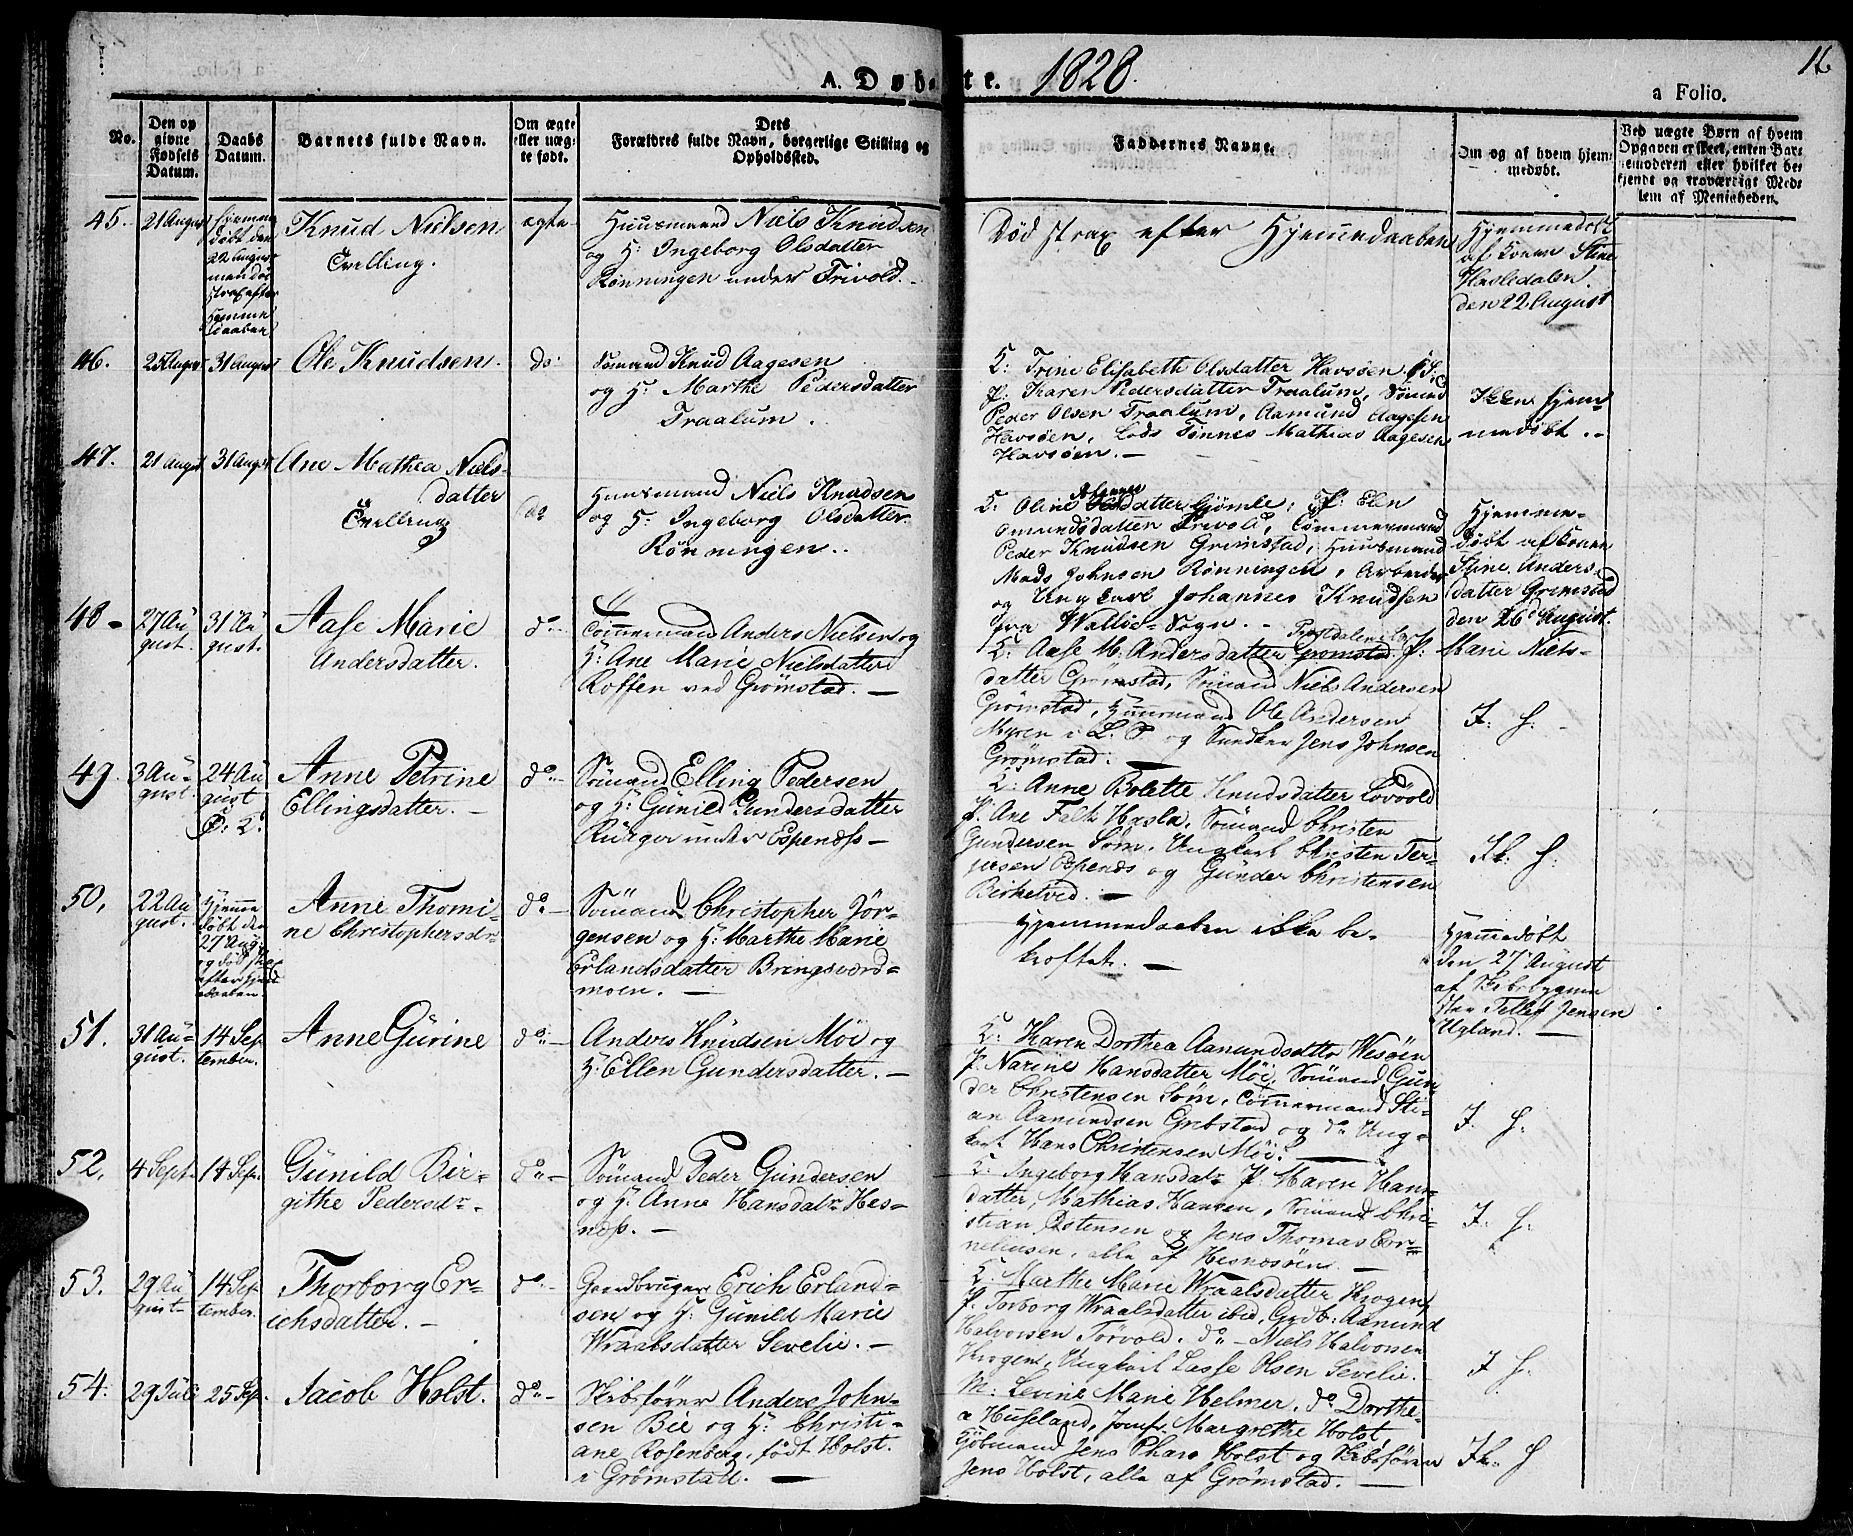 A. Døbte. 1828.
12
a Folio.
No.
Den op
givne
Fødsels
Datum.
Daabs
Datum.
Barnets fulde Navn.
Om ægte
eller uæg-
te født.
Dets
Forældres fulde Navn, borgerlige Stilling og
Opholdssted.
Faddernes Navne.
Om og af hvem hjem-
medøbt.
Ved uægte Børn af hvem
Opgaven er skeet, enten Bar-
nemoderen eller hvilket be-
kjendt og troværdigt Med-
lem af Menigheden.
45.
21 August
hjemme
døbt den
22 August
men død
strax efter
Hjemme
daaben
Knud Nielsen
Tvelling.
ægte
Huusmand Niels Knudsen
og H: Ingeborg Olsdatter
Rønningen under Frivold.
Død strax efter Hjemmedaaben
Hjemmedøbt
af Konen Stine
Hasledalen.
den 22 August
46.
25 August
31 August
Ole Knudsen.
do:
Sømand Knud Aagesen
og H: Marthe Pedersdatter
Traalum.
Trine Elisabeth Olsdatter Havsøen
P: Karen Pedersdatter Traalum, Sømand
Peder Olsen Traalum, Aamund Aagesen
Havsøen, Lods Tønnes Mathias Aagesen
Havsøen.—
Ikke hjem-
medøbt.
47.
21 August
31 August
Ane Mathea Niels-
datter
Tvelling
do
Huusmand Niels Knudsen
og H: Ingeborg Olsdatter
Rønningen.
Oline datter Gjømle, P: Elen
Omundsdatter Frivold, Tømmermand
Peder Knudsen Grimstad, Huusmand
Mads Johnsen Rønningen, Arbeider
og Ungkarl Johannes Knudsen
fra Sogn.—
Hjemme-
døbt af Konen
Stine Anders-
datter Grimstad
den 26 August.
48-
27 Au
gust.
31 Au
gust.
Aase Marie
Andersdatter.
do.
Tømmermand Anders Nielsen og
H: Ane Marie Nielsdatter
Roffen ved Grømstad.—
Aase M. Andersdatter Grømstad P: Marie Niels-
datter Grømstad, Sømand Niels Andersen
Grømstad, Huusmand Ole Andersen
Myren i L. P og Snedker Jens Johnsen
Grømstad.
I: H:
49.
3 Au-
gust.
24 Au
gust
i
Anne Petrine
Ellingsdatter.—
do-
Sømand Elling Pedersen
og H: Gunild Gundersdatter
under Espenæss—
Anne Bolette Knudsdatter
P: Ane Falk Hasla, Sømand Christen
Gundersen Søm, Ungkarl Christen Ter-
jersen Espenæs og Gunder Christensen
Birketvid.—
Ik: H:
50,
22 Au
gust.
Hjemme
døbt den
27 Aug:
og død strax
efter Hjemme
daaben.
Anne Thomi-
ne Christophersdr
do-
Sømand Christopher Jør-
gensen og H: Marthe Marie
Erlandsdatter Bringsværd-
moen.—
Hjemmedaaben ikke be-
kræftet.—
Hjemmedøbt
den 27 August
af Skibsbygme
ster Tellef Jensen
Ugland.—
51.
31 Au-
gust.
14 Sep
tember.
Anne Gurine
do-
Anders Knudsen Møi og
H: Ellen Gundersdatter.—
Karen Dorthea Aamundsdttr Vesøen
P. Narine Hansdatter Møi, Sømand Gun-
der Christensen Søm, Tømmermand Sti-
an Aamundsen Grebstad og do Ung-
karl Hans Christensen Møi.
I. H:
52.
4 Sept.
14 Sep.
Gunild Bir-
githe Pedersdr.
do-
Sømand Peder Gundersen
og H. Anne Hansdatr Hes-
næss.—
Ingeborg Hansdatr P: Maren Hans-
datter, Mathias Hansen, Sømand Chri-
stian Østensen og Jens Thomas Cor-
neliusen, alle af Hesnesøen.—
I. H:
53.
29 Au
gust.
14 Sep
tember.
Thorborg Er-
ichsdatter.—
do.
Gaardbruger Erich Erland-
sen og H: Gunild Marie
Wraalsdatter Sevelie.—
Marthe Marie Wraalsdatter Krogen
P. Torborg Wraalsdatter ibid, Grdb: Aamund
Halvorsen Tørvold. do- Niels Halvorsen
Krogen, Ungkarl Lasse Olsen Sevelie.—
I H:
54.
29 Juli
25 Sep.
Jacob Holst.
do-
Skibsfører Anders John-
sen Bie og H: Christi-
ane Rosenberg, født Holst
i Grømstad.—
M: Levine Marie Helmer, do Dorthe-
a Huseland, Jomfr. Margrethe Holst,
Kjøbmand Jens Pharo Holst og Skibsføren
Jens Holst, alle af Grømstad.—
Ik. H